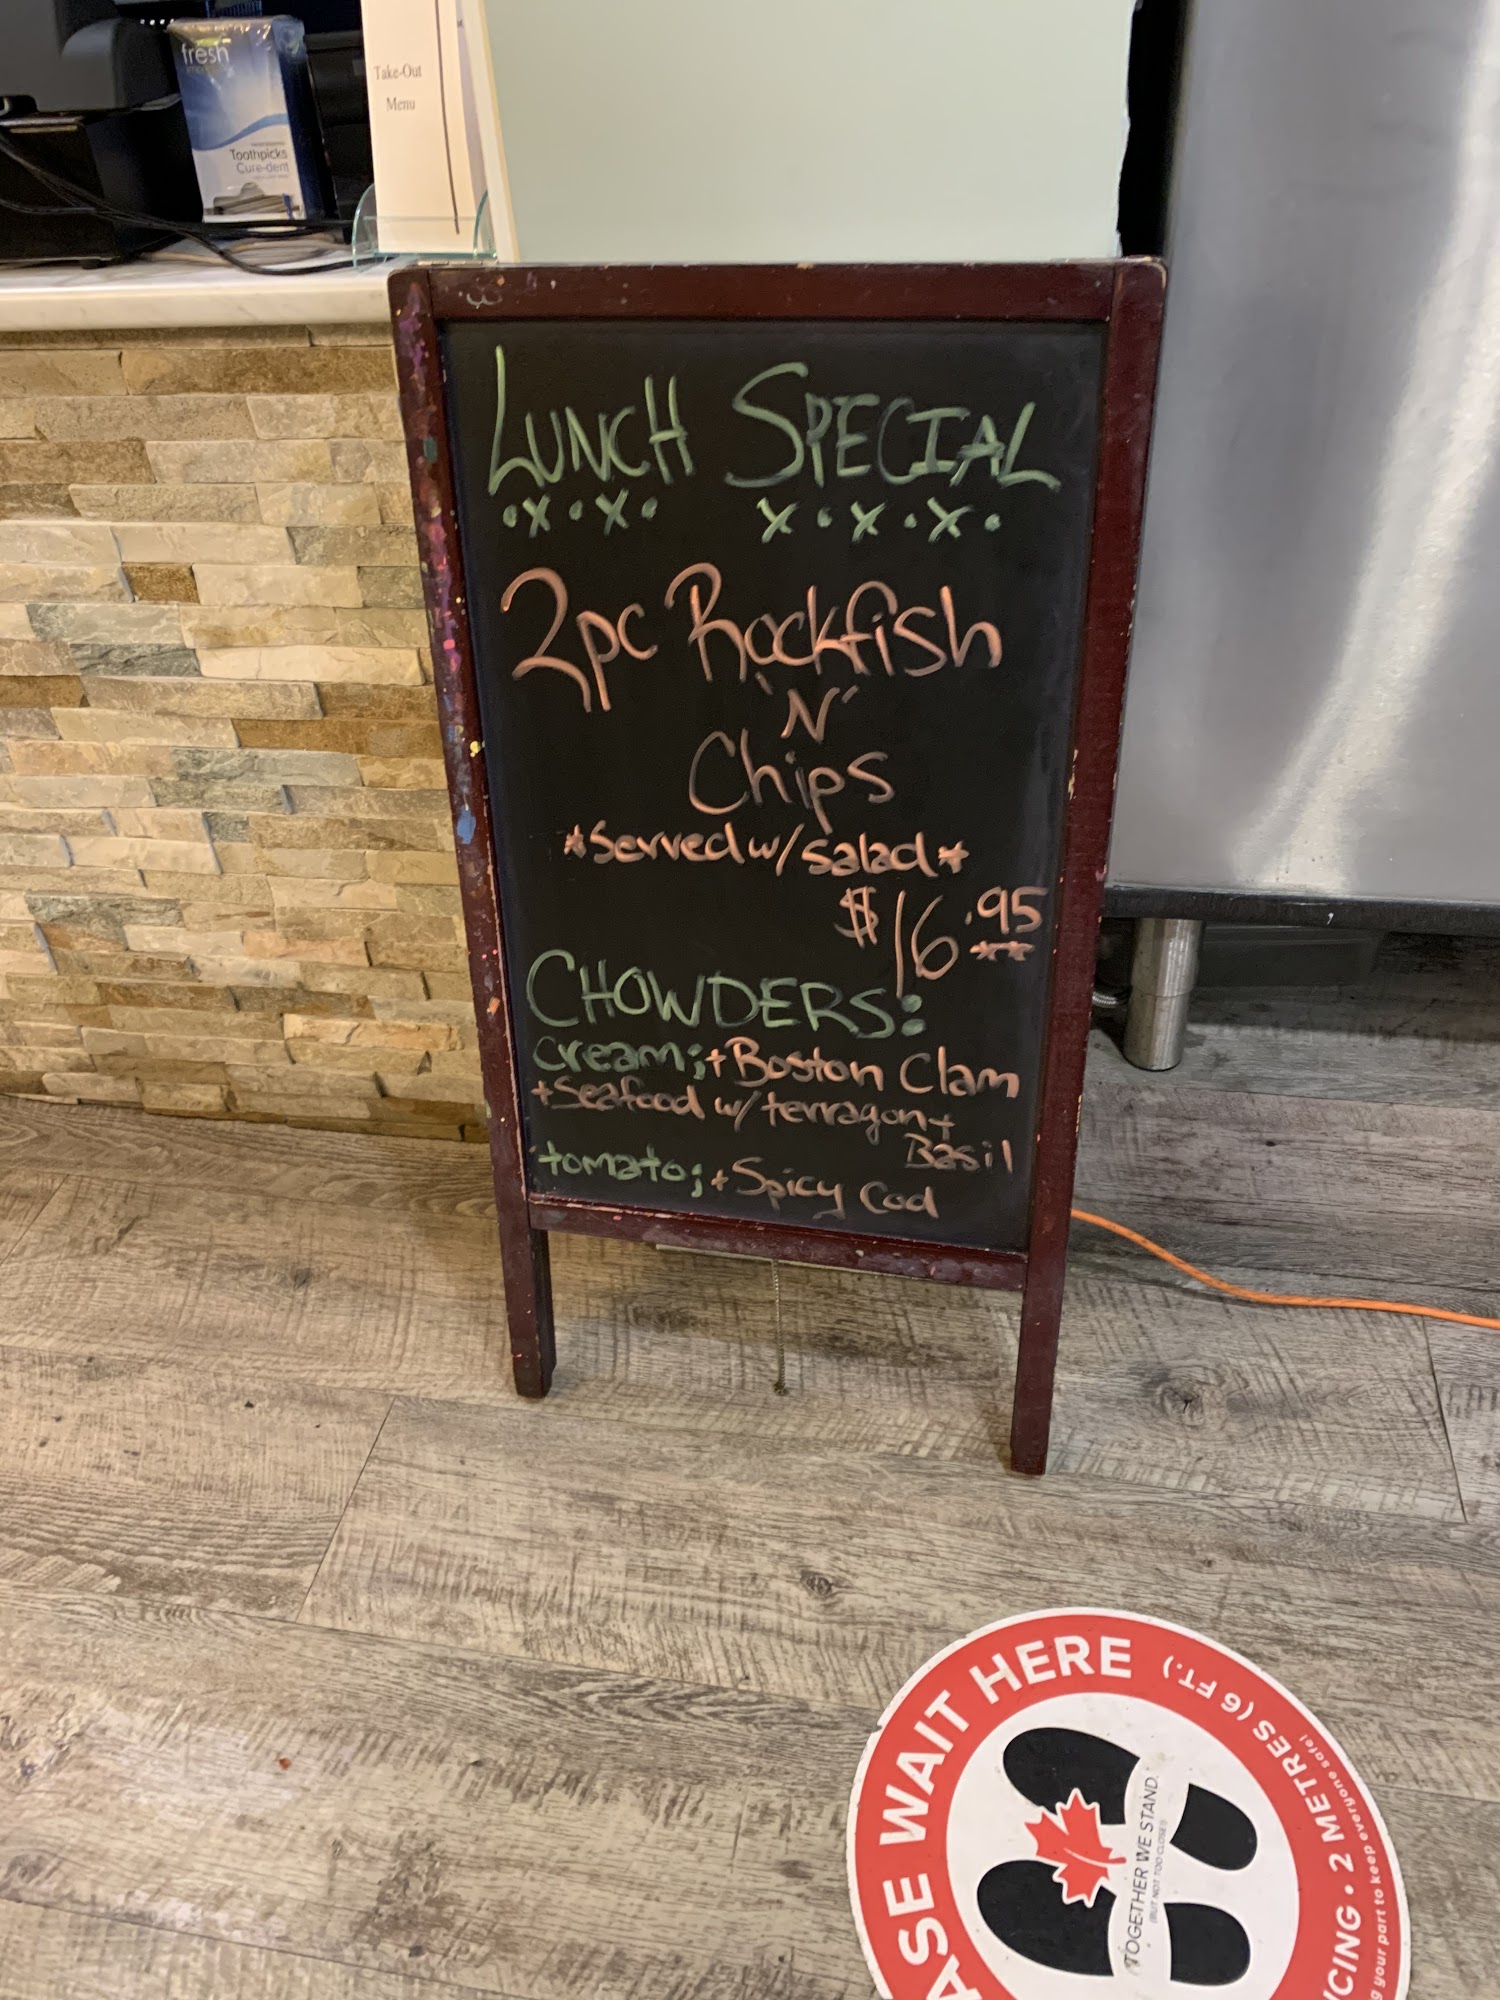 fresh
Toothpicks
Cure-dent
Take-Out
Menu
LUNCH SPECIAL
2pc Rockfish
'N'
Chips
*Served w/ salad*
$16.95
CHOWDERS:
cream; + Boston Clam
+ Seafood w/ terragon +
Basil
tomato; + Spicy Cod
ASE WAIT HERE
CING • 2 METRES (6 FT.)
g your part to keep everyone safe!
TOGETHER WE STAND.
(BUT NOT TOO CLOSE!)